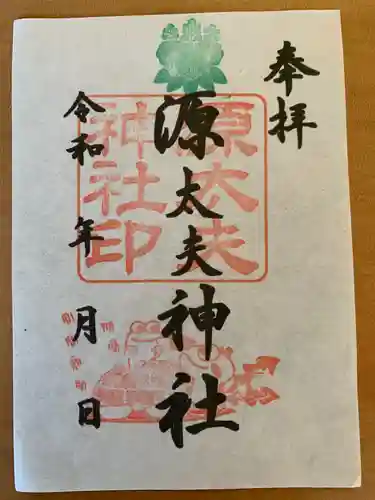 奉拝
源太夫神社
令和 年 月 日
源太夫
神社印